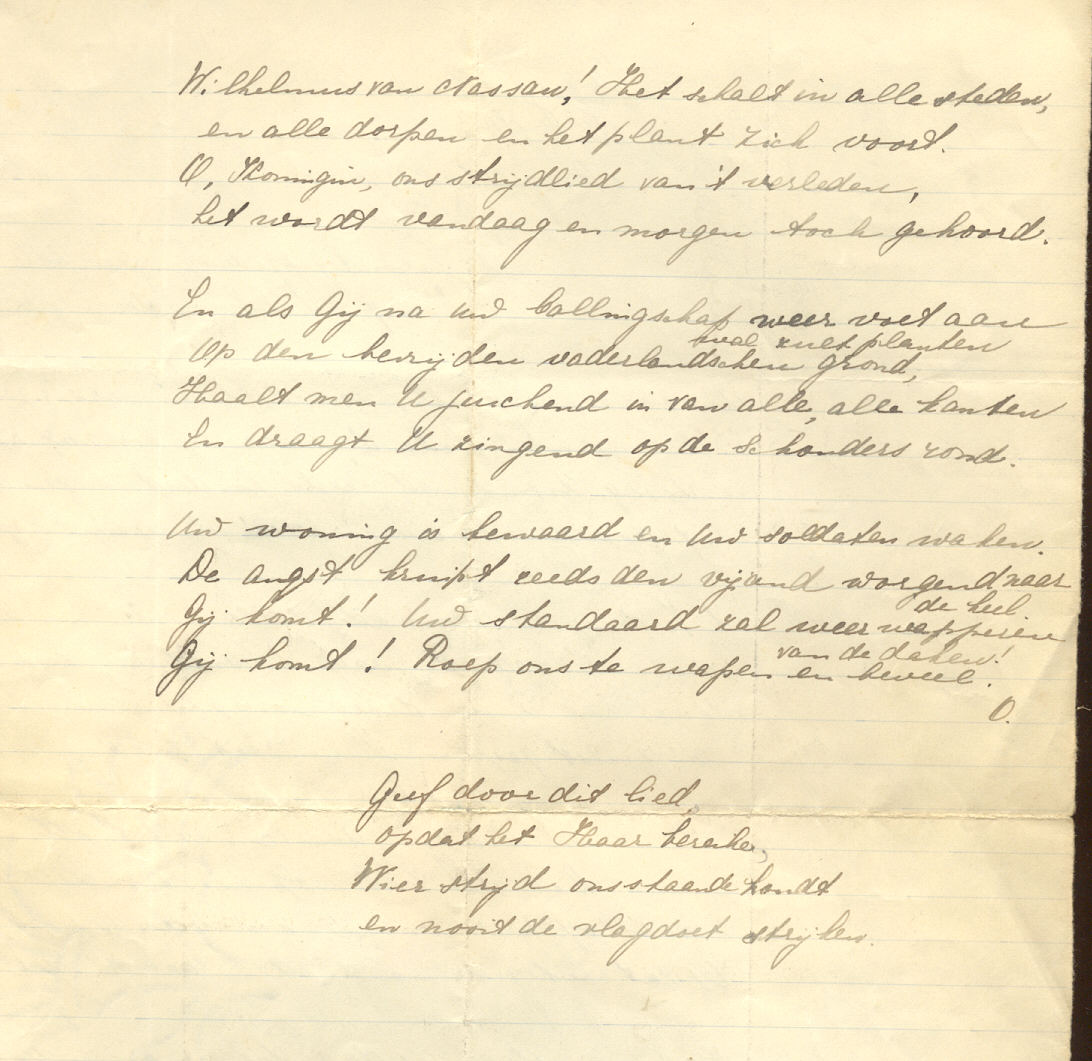 Wilhelmus van Nassau! Het schalt in alle steden,
en alle dorpen en het plant zich voort.
O, Koningin, ons strijdlied van 't verleden,
het wordt vandaag en morgen toch gehoord.
En als Gij na Uw ballingschap weer voet aan
wal zult planten
Op den bevrijden vaderlandschen grond,
Haalt men U juichend in van alle, alle kanten
En draagt U zingend op de schouders rond.
Uw woning is bewaard en Uw soldaten waken.
De angst kruipt reeds den vijand worgend naar
de keel
Gij komt! Uw standaard zal weer wapperen
van de daken!
Gij komt! Roep ons te wapen en beveel.
O.
Geef door dit lied,
opdat het Haar bereike,
Wier strijd ons staande houdt
en nooit de vlag doet strijken.